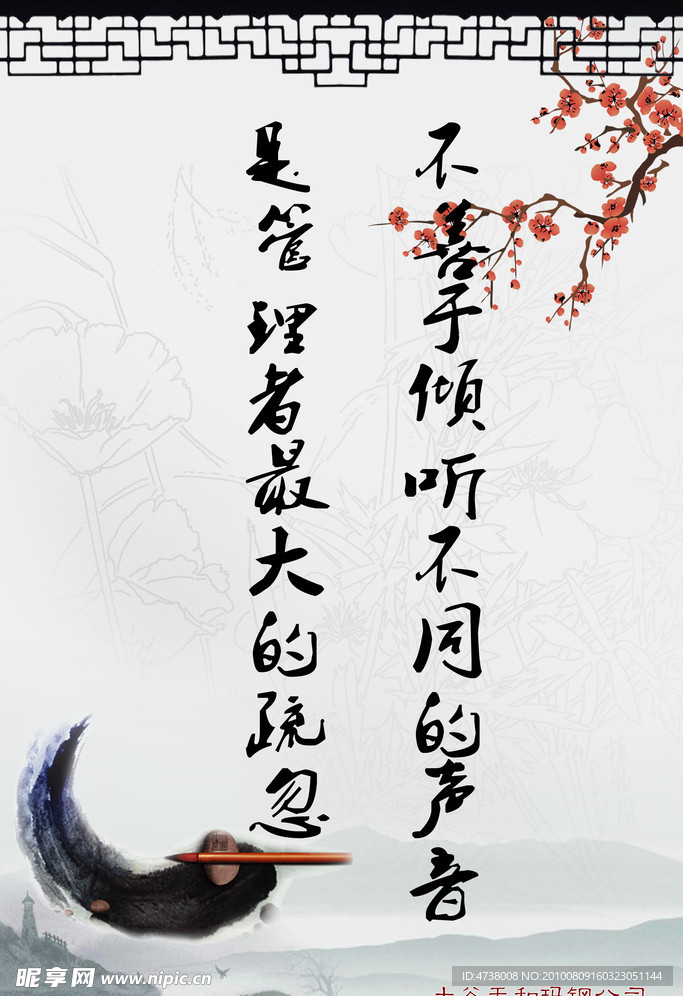 不善于倾听不同的声音
是管理者最大的疏忽
昵享网 www.nipic.cn
ID:4738008 NO:20100809160323051144